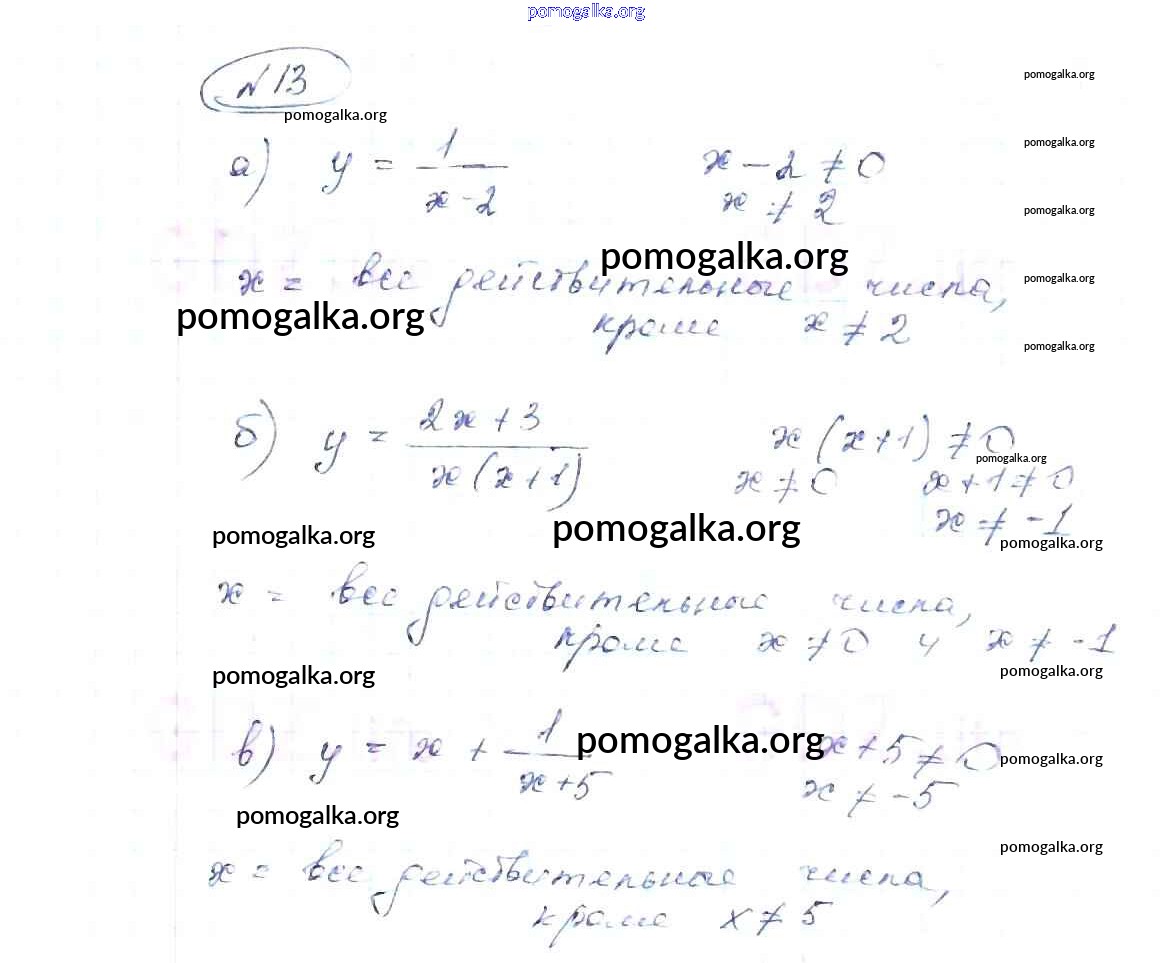 pomogalka.org
№ 13
pomogalka.org
pomogalka.org
а) y = 1/(x-2) x - 2 ≠ 0
pomogalka.org
x ≠ 2
pomogalka.org
x = все действительные числа,
pomogalka.org
pomogalka.org
pomogalka.org
кроме x ≠ 2
pomogalka.org
б) y = (2x+3)/(x(x+1)) x(x+1) ≠ 0
pomogalka.org
x ≠ 0 x+1 ≠ 0
x ≠ -1
pomogalka.org
pomogalka.org
pomogalka.org
x = все действительные числа,
кроме x ≠ 0 и x ≠ -1
pomogalka.org
pomogalka.org
в) y = x + 1/(x+5) x+5 ≠ 0
pomogalka.org
pomogalka.org
x ≠ -5
pomogalka.org
pomogalka.org
x = все действительные числа,
кроме x ≠ 5